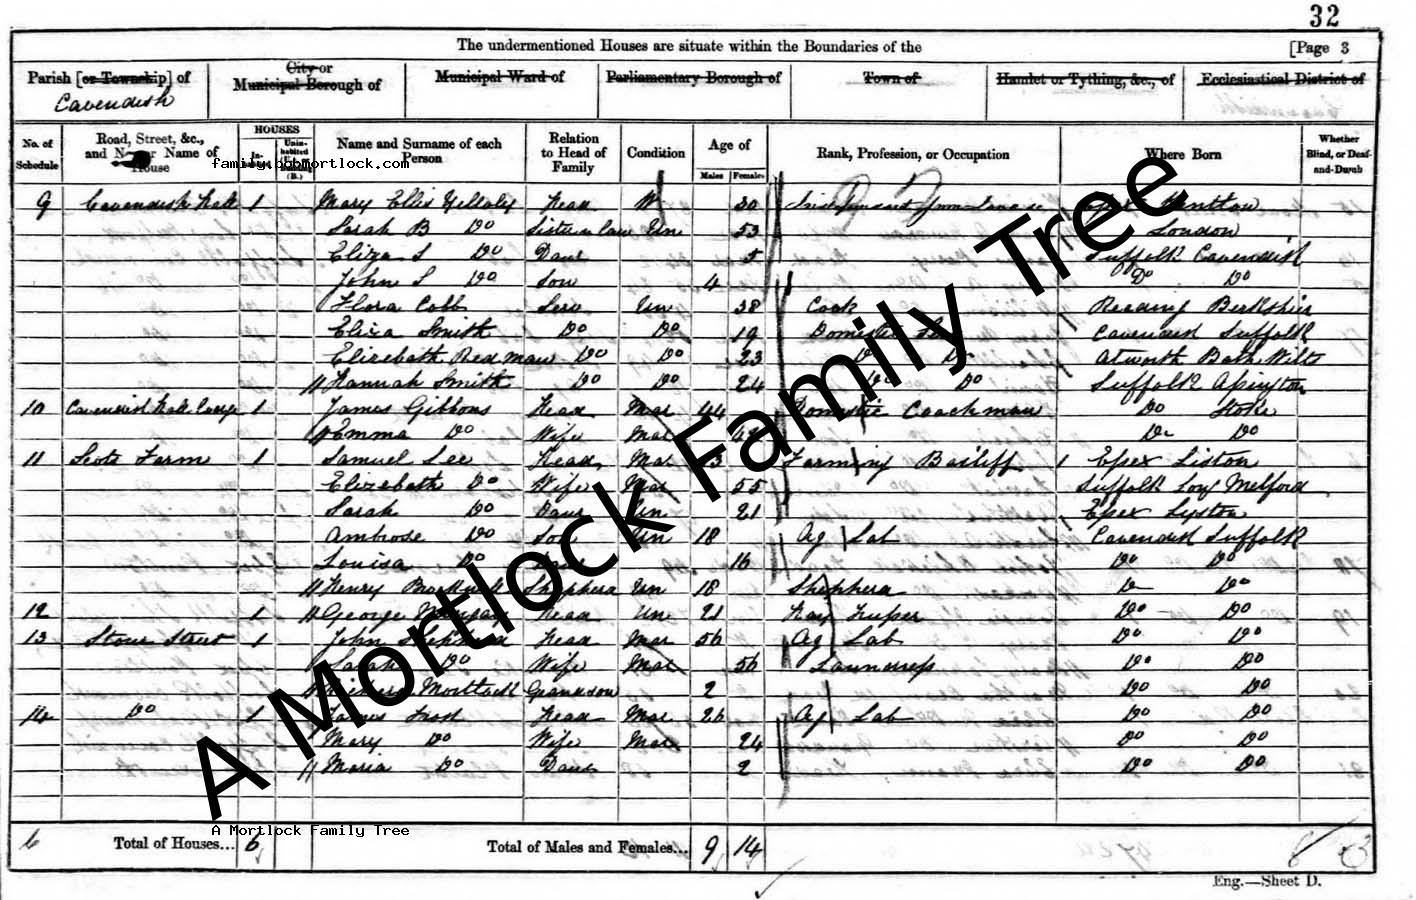 32
The undermentioned Houses are situate within the Boundaries of the [Page 3
Parish [or Township] of City or Municipal Borough of Municipal Ward of Parliamentary Borough of Town of Hamlet or Tything, &c., of Ecclesiastical District of
Cavendish
No. of Schedule Road, Street, &c., and No. or Name of House HOUSES Inhabited Uninhabited (U.) or Building (B.) Name and Surname of each Person Relation to Head of Family Condition Age of Males Females Rank, Profession, or Occupation Where Born Whether Blind, or Deaf-and-Dumb
family.bobmortlock.com
9 Cavendish Hall 1 Mary Ellis Head W 30 Essex
Sarah B Do Sister in law Un 53 London
Eliza S Do Daur 5 Suffolk Cavendish
John S Do Son 4 Do Do
Flora Cobb Serv Un 38 Cook Reading Berkshire
Eliza Smith Do Do 19 Domestic Cavendish Suffolk
Elizabeth Redman Do Do 23 Do Do Atworth Bath Wilts
Hannah Smith Do Do 24 Do Do Suffolk
10 Cavendish Hall 1 James Gibbons Head Mar 44 Domestic Coachman Do Stoke
Emma Do Wife Mar Do Do
11 Scots Farm 1 Samuel Lee Head Mar Farming Bailiff 1 Essex Liston
Elizabeth Do Wife Mar 55 Suffolk Long Melford
Sarah Do Daur Un 21 Essex Lyston
Ambrose Do Son Un 18 Ag Lab Cavendish Suffolk
Louisa Do 16 Do Do
Henry Shepherd Un 18 Shepherd Do Do
12 1 George Head Un 21 Do Do
13 Stour Street 1 John Head Mar 56 Ag Lab Do Do
Sarah Do Wife Mar 56 Laundress Do Do
Mortlock Grandson 2 Do Do
14 Do 1 James Head Mar 26 Ag Lab Do Do
Mary Do Wife Mar 24 Do Do
Maria Do Daur 2 Do Do
A Mortlock Family Tree
A Mortlock Family Tree
6 Total of Houses... 6 Total of Males and Females... 9 14
Eng.—Sheet D.